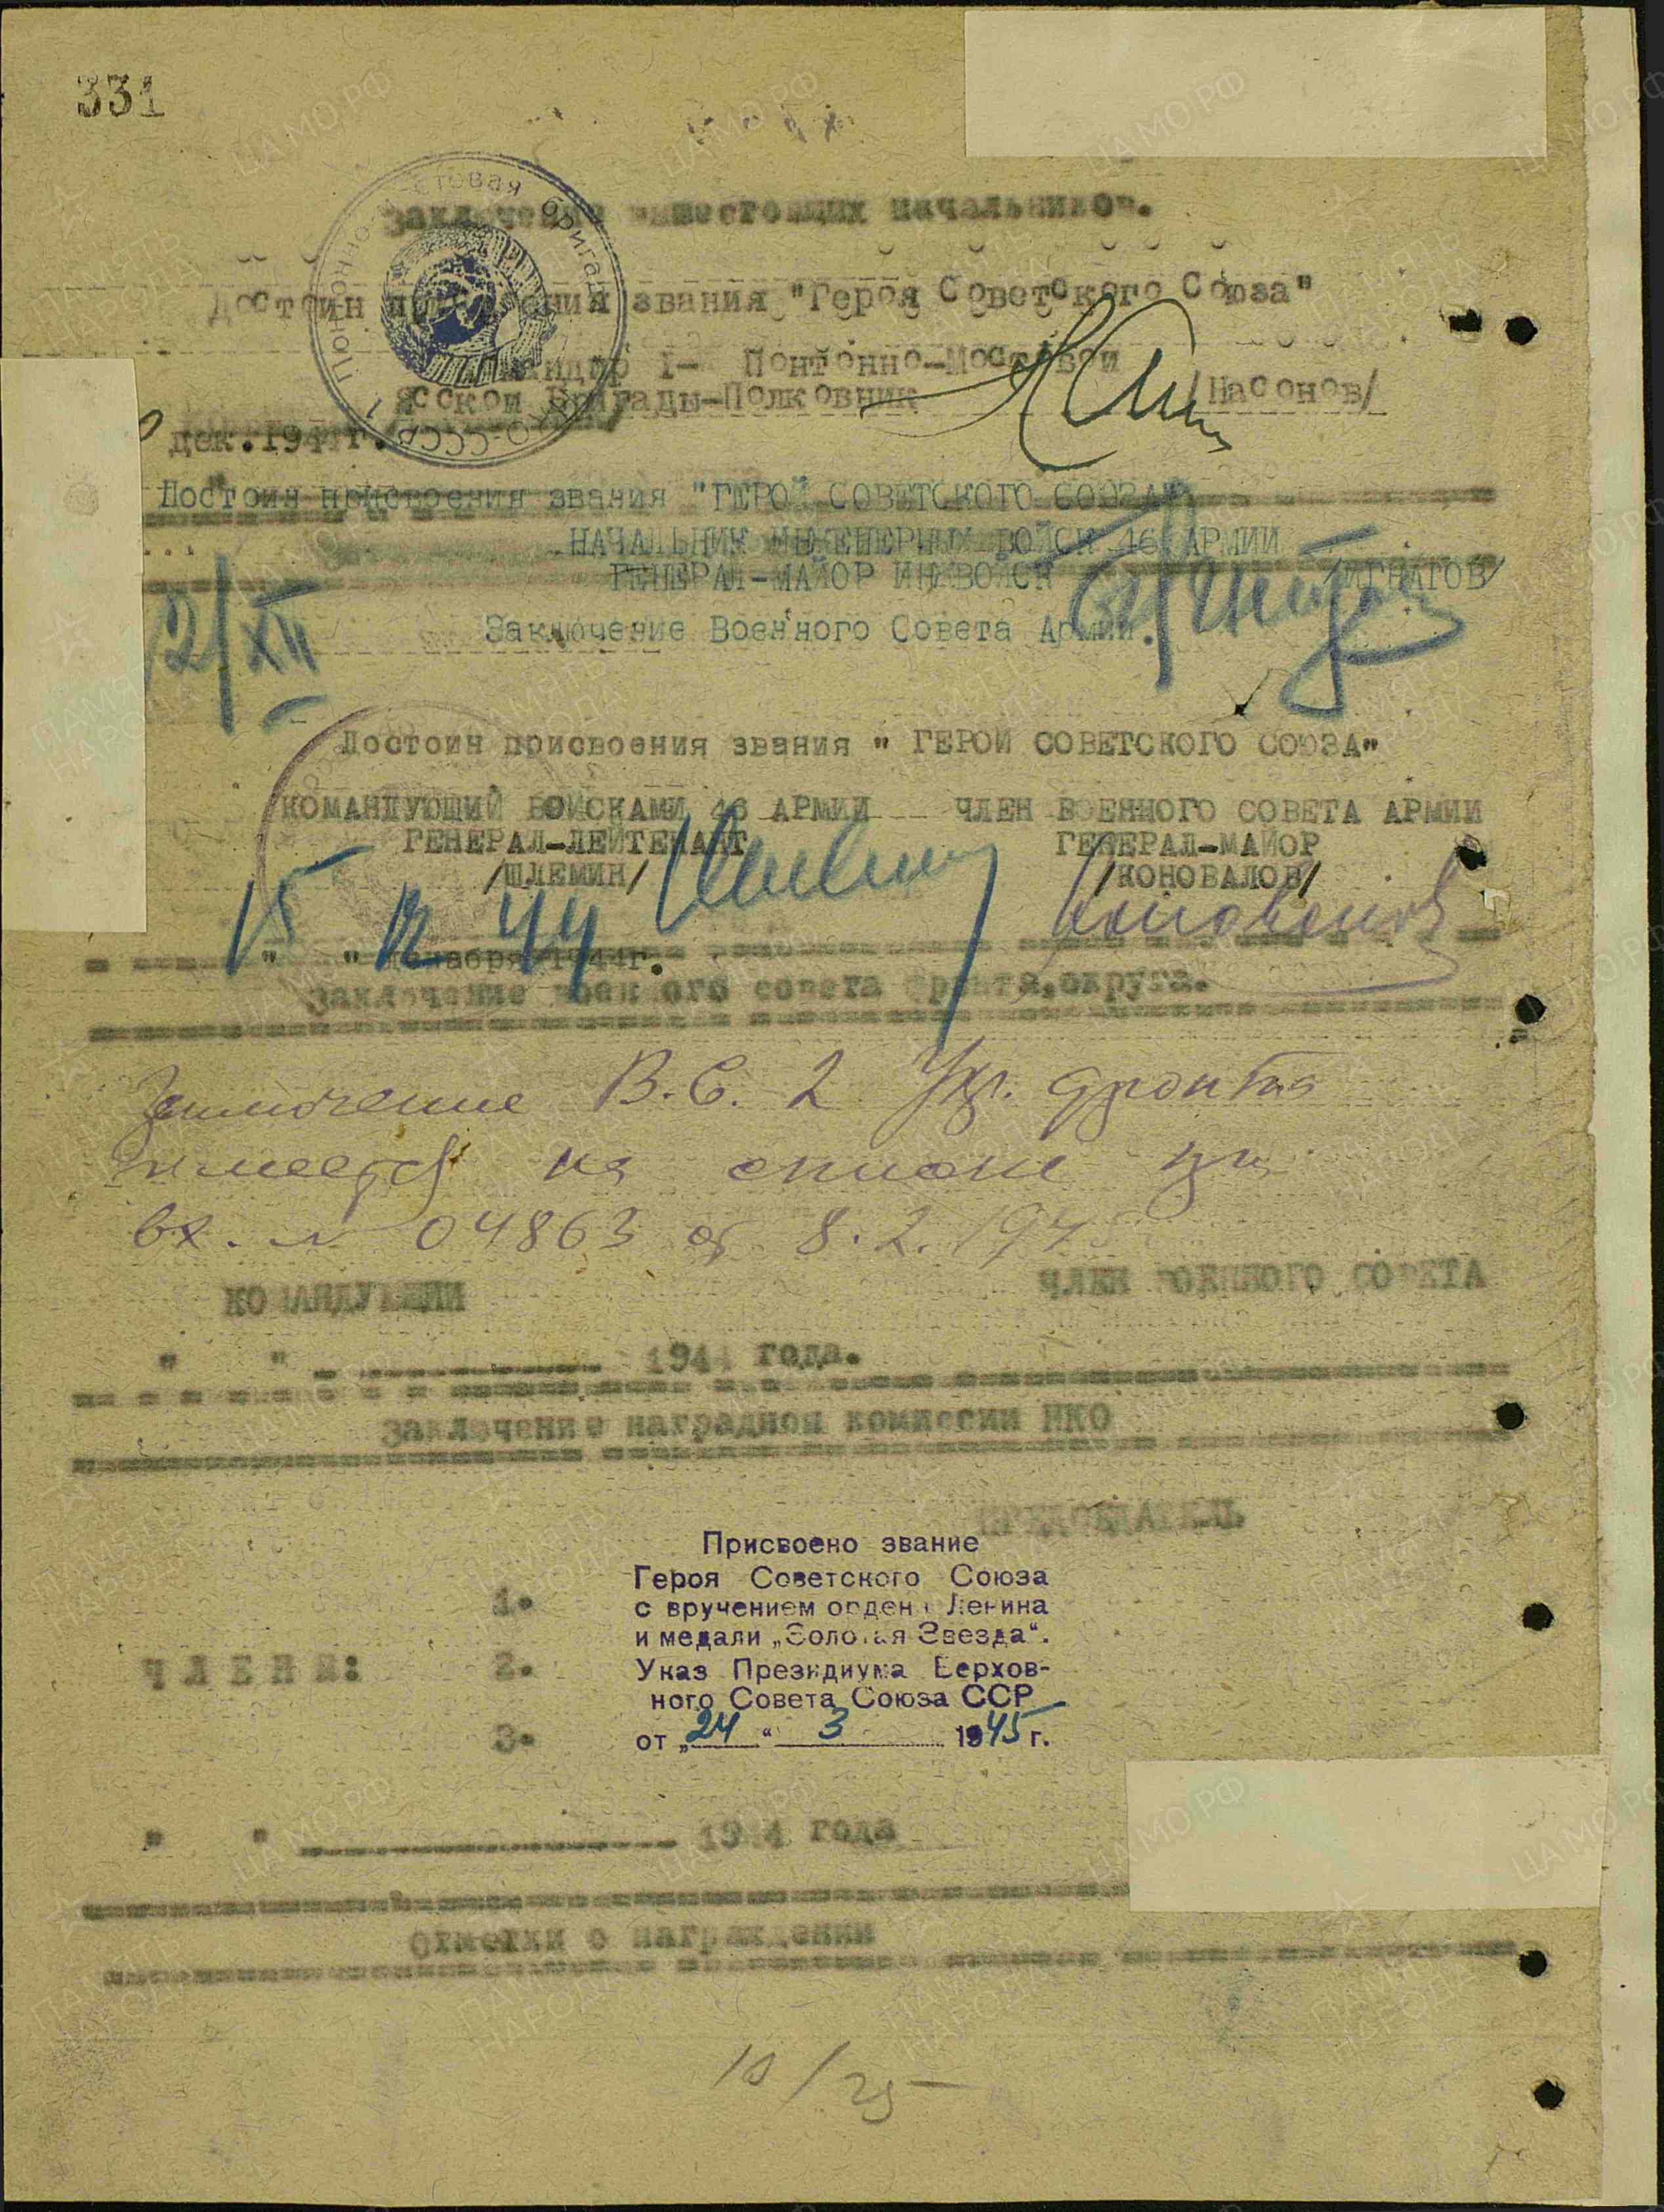 331
Заключение вышестоящих начальников.
Достоин присвоения звания "Героя Советского Союза"
Командир 1- Понтонно-Мостовой
Ясской Бригады-Полковник /Насонов/
дек. 1944г.
Достоин присвоения звания "ГЕРОЙ СОВЕТСКОГО СОЮЗА"
НАЧАЛЬНИК ИНЖЕНЕРНЫХ ВОЙСК 46 АРМИИ
ГЕНЕРАЛ-МАЙОР ИНЖВОЙСК /ИГНАТОВ/
12/XII
Заключение Военного Совета Армии.
Достоин присвоения звания " ГЕРОЙ СОВЕТСКОГО СОЮЗА"
КОМАНДУЮЩИЙ ВОЙСКАМИ 46 АРМИИ ЧЛЕН ВОЕННОГО СОВЕТА АРМИИ
ГЕНЕРАЛ-ЛЕЙТЕНАНТ ГЕНЕРАЛ-МАЙОР
/ШЛЕМИН/ /КОНОВАЛОВ/
15 12 44
" " декабря 1944г.
Заключение военного совета фронта, округа.
Заключение В.С. 2 Укр. фронта
имеется на списке при
вх. № 04863 от 8.2.1945
КОМАНДУЮЩИЙ ЧЛЕН ВОЕННОГО СОВЕТА
" " 1944 года.
Заключение наградной комиссии НКО
ПРЕДСЕДАТЕЛЬ
Присвоено звание
Героя Советского Союза
с вручением ордена Ленина
и медали „Золотая Звезда“.
Указ Президиума Верхов-
ного Совета Союза ССР
от „24“ 3 1945 г.
1.
ЧЛЕНЫ: 2.
3.
" " 1944 года
Отметки о награждении
10/25-